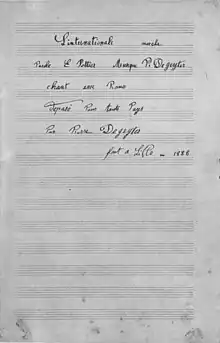 L'internationale marche
Parole E Pottier Musique P. Degeyter
chant avec Piano
Déposé Pour toute Pays
Par Pierre Degeyter
fait a Lille — 1888